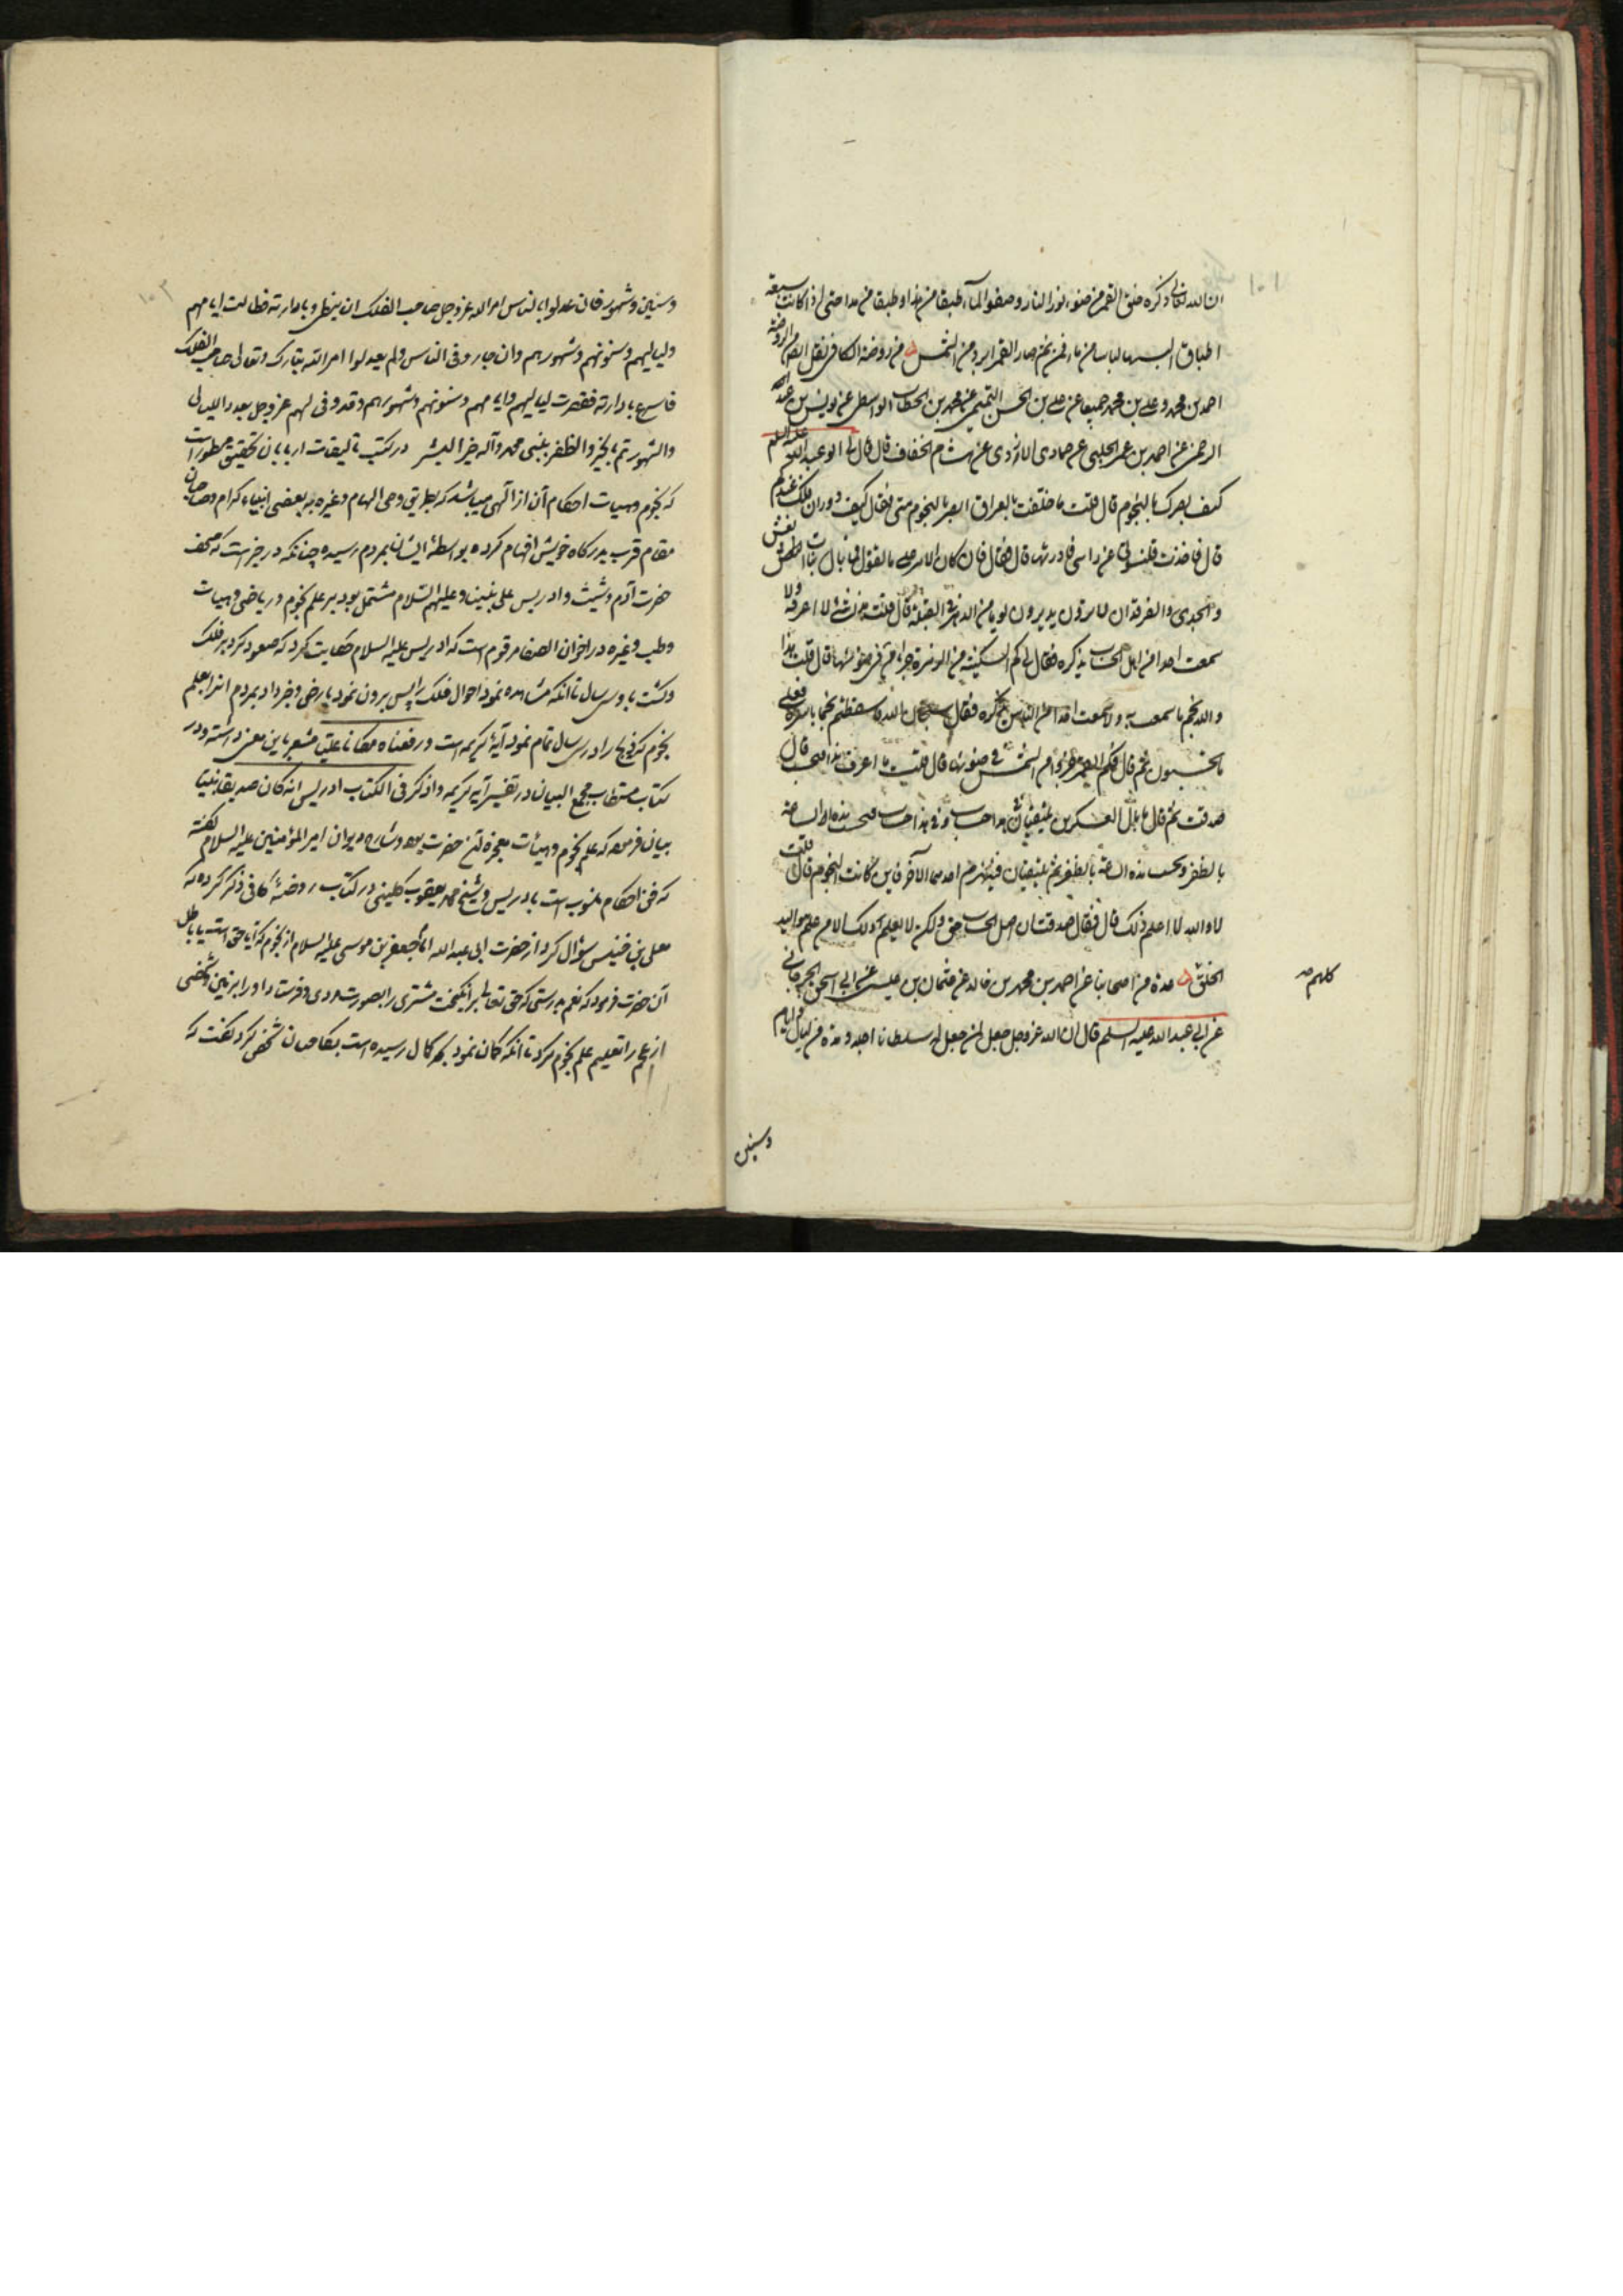 ان الله تعالی ذکره خلق القمر من ضوء نور النار وصفو الماء طبقا من هذا وطبقا من هذا حتی اذا کانت سبعة
اطباق البسها لباسا من ماء فمن ثم صار القمر ابرد من الشمس من روضة الکافی نقل
احمد بن محمد وعلی بن محمد جمیعا عن علی بن الحسن التیمی عن محمد بن الخطاب الواسطی عن یونس بن عبد
الرحمن عن احمد بن عمر الحلبی عن حماد الازدی عن هشام الخفاف قال قال لی ابو عبد الله علیه السلم
کیف بصرک بالنجوم قال قلت ما خلفت بالعراق ابصر بالنجوم منی فقال کیف دوران الفلک عندکم
قال فاخذت قلنسوتی عن راسی فادرتها قال فقال فان کان الامر علی ما تقول فما بال بنات نعش
والجدی والفرقدان لا یرون یدورون یوما من الدهر فی القبلة قال قلت هذا شئ لا اعرفه ولا
سمعت احدا من اهل الحساب یذکره فقال لی کم السکینة من الزهرة جزءا فی ضوئها قال قلت هذا
والله نجم ما سمعت به ولا سمعت احدا من الناس یذکره فقال سبحان الله فاسقطتم نجما باسره فعلی
ما تحسبون ثم قال فکم القمر جزءا من الشمس فی ضوئها قال قلت ما اعرف هذا قال
صدقت ثم قال ما بال العسکرین یلتقیان فی هذا حاسب وفی هذا حاسب فیحسب هذا لصاحبه
بالظفر ویحسب هذا لصاحبه بالظفر ثم یلتقیان فیهزم احدهما الآخر فاین کانت النجوم قال قلت
لا والله لا اعلم ذلک قال فقال صدقت ان اصل الحساب حق ولکن لا یعلم ذلک الا من علم موالید
الخلق عدة من اصحابنا عن احمد بن محمد بن خالد عن عثمان بن عیسی عن ابی اسحق الجرجانی
عن ابی عبد الله علیه السلم قال ان الله عز وجل جعل لمن جعل له سلطانا اجلا ومدة من لیال وایام
کلهم صح
وسنین
۱۰۱
وسنین وشهور فان عدلوا بالناس امر الله عز وجل صاحب الفلک ان یبطئ بادارته فطالت ایامهم
ولیالیهم وسنونهم وشهورهم وان جاروا فی الناس ولم یعدلوا امر الله تبارک وتعالی صاحب الفلک
فاسرع بادارته فقصرت لیالیهم وایامهم وسنونهم وشهورهم وقد وفی لهم عز وجل بعدد اللیالی
والشهور تم بالخیر والظفر بنبی محمد وآله خیر البشر در کتب تالیفات اربابان تحقیق مسطور است
که نجوم وهیات احکام آن از الهی میباشد که بطریق وحی الهام وغیره به بعضی انبیاء کرام وصاحبان
مقام قرب بدرکاه خویش افهام کرده بواسطه ایشان بمردم رسیده چنانکه در خبر است که صحف
حضرت آدم وشیث وادریس علی نبینا وعلیهم السلام مشتمل بود بر علم نجوم وریاضی وهیات
وطب وغیره در اخوان الصفا مرقوم است که ادریس علیه السلام حکایت کرد که صعود کرد بر فلک
وکشت با وی سی سال تا انکه مشاهده نمود احوال فلک را پس برون نمود بارض وخبر داد بمردم انرا بعلم
نجوم که در سی سال تمام نمود آیهٔ کریمه است ورفعناه مکانا علیا مشعر باین معنی دانسته ودر
کتاب مستطاب مجمع البیان در تفسیر آیه کریمه واذکر فی الکتاب ادریس انه کان صدیقا نبیا
بیان فرموده که علم نجوم وهیات معجزه آن حضرت بوده وشارح دیوان امیر المؤمنین علیه السلام گفته
که فن احکام منسوب است بادریس وشیخ محمد یعقوب کلینی در کتاب روضهٔ کافی ذکر کرده که
معلی بن خنیس سؤال کرد از حضرت ابی عبد الله جعفر بن موسی علیه السلام از نجوم که آیا حق است یا باطل
آن حضرت فرمود که نعم بدرستی که حق تعالی برانکیخت مشتری را بصورت مردی وفرستاد او را بر زمین وشخصی
از عجم را تعلیم علم نجوم کرد تا انکه کمان نمود که بکمال رسیده است شخص کرد بکفت که
۱۰۲